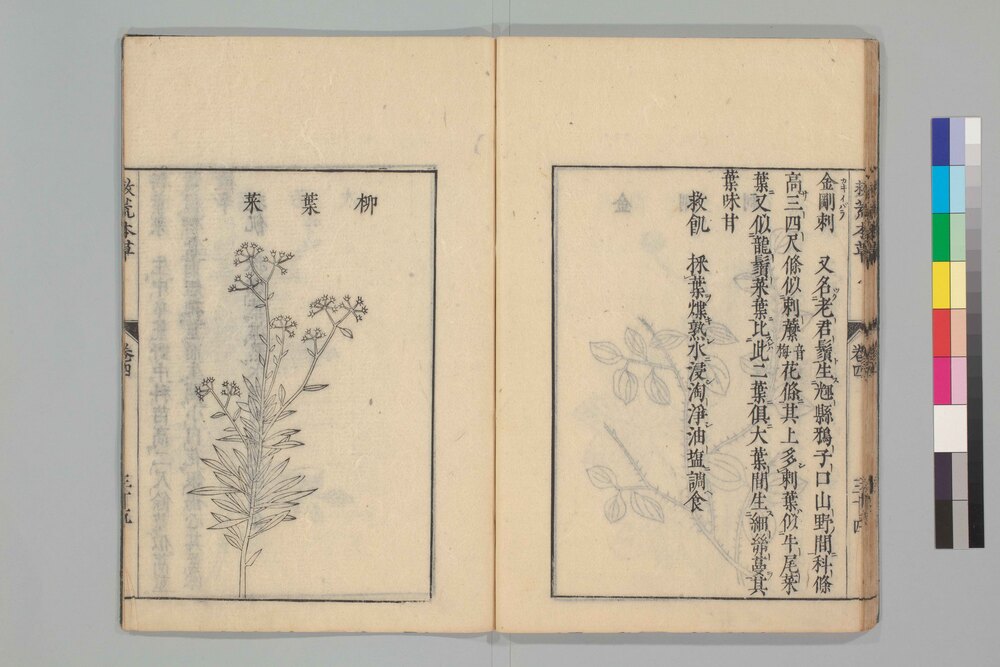 金剛刺 又名老君鬚生𨍭縣鴉子口山野間科條
高三四尺條似刺蘼音梅花條其上多刺葉似牛尾菜
葉又似龍鬚菜葉比此二葉俱大葉間生細絲蔓其
葉味甘
救飢 採葉煠熟水浸淘淨油塩調食
柳葉菜
救荒本草
卷四
三十五